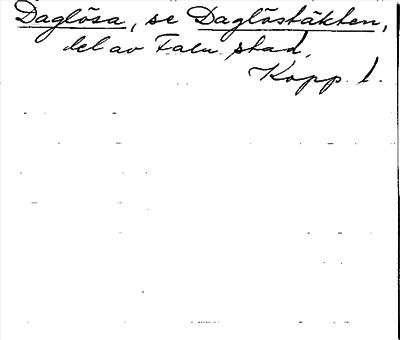 Daglösa, se Daglöstäkten,
del av Falu stad.
Kopp. l.